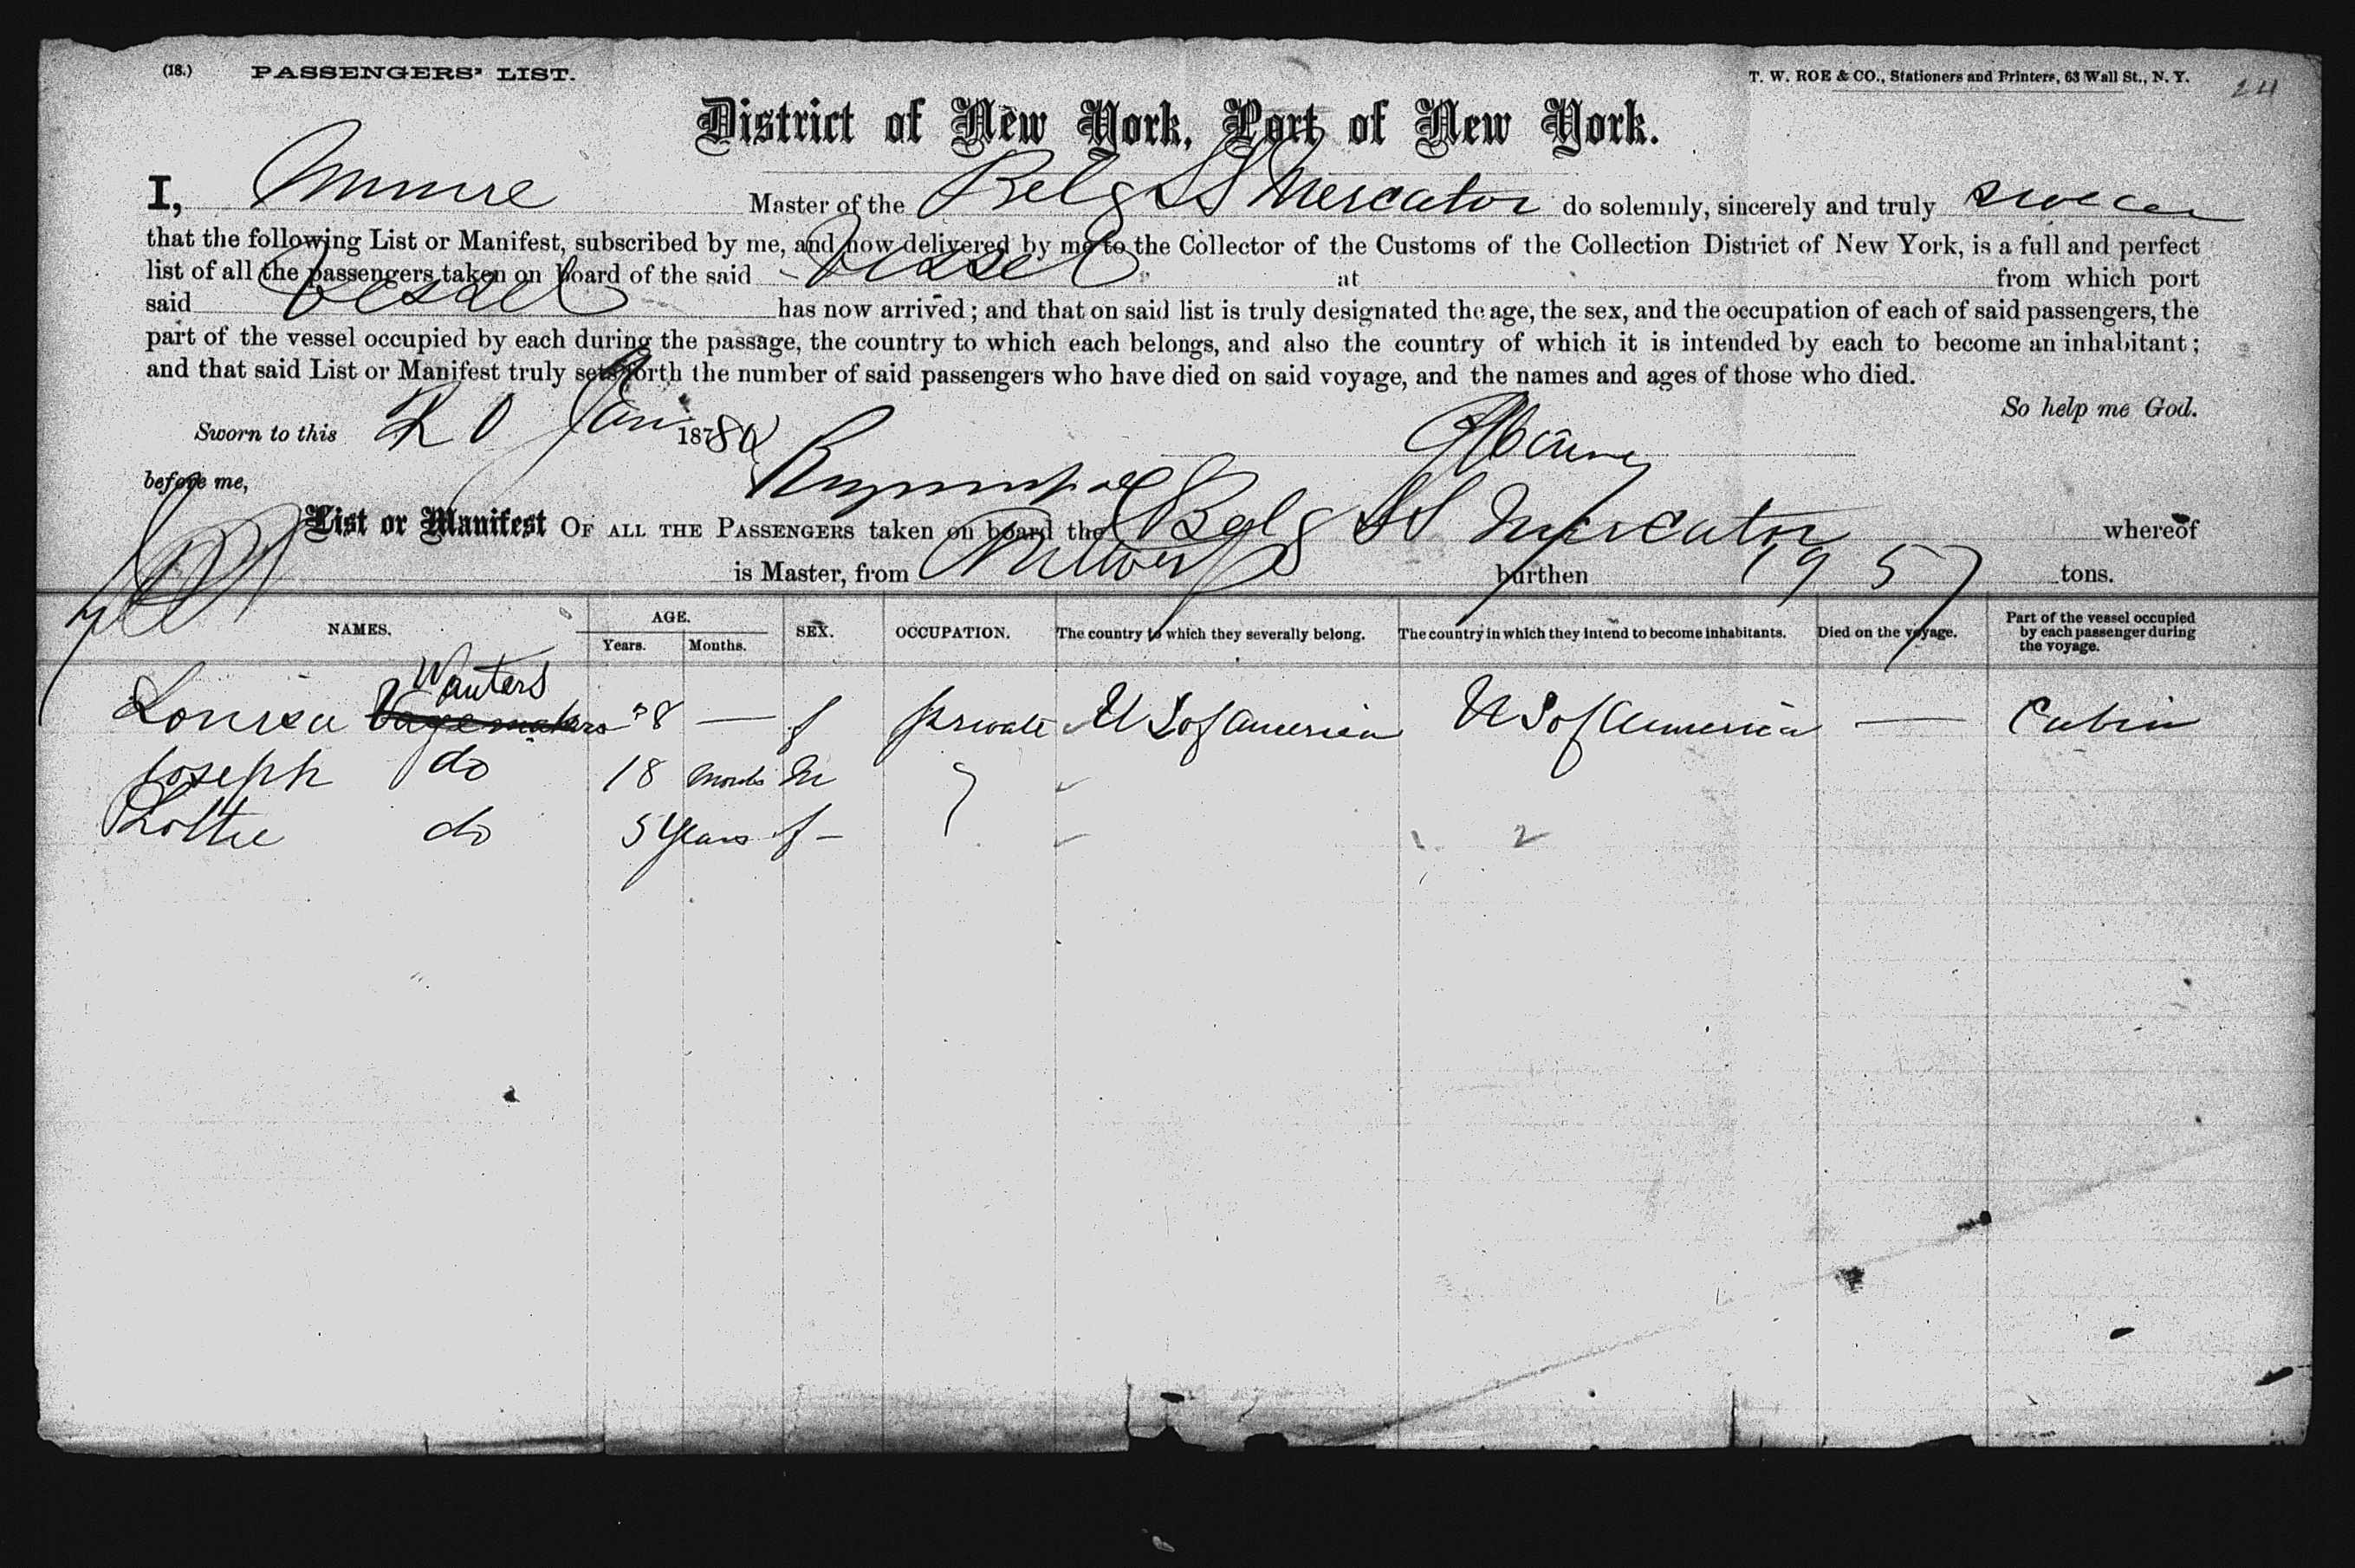 (18.) PASSENGERS' LIST. T. W. ROE & CO., Stationers and Printers, 63 Wall St., N. Y. 24
District of New York, Port of New York.
I, Master of the Belg SS Mercator do solemnly, sincerely and truly swear
that the following List or Manifest, subscribed by me, and now delivered by me to the Collector of the Customs of the Collection District of New York, is a full and perfect
list of all the passengers taken on board of the said Vessel at from which port
said Vessel has now arrived; and that on said list is truly designated the age, the sex, and the occupation of each of said passengers, the
part of the vessel occupied by each during the passage, the country to which each belongs, and also the country of which it is intended by each to become an inhabitant;
and that said List or Manifest truly sets forth the number of said passengers who have died on said voyage, and the names and ages of those who died.
So help me God.
Sworn to this 20 Jan 18780
before me,
List or Manifest OF ALL THE PASSENGERS taken on board the Belg SS Mercator whereof
is Master, from Antwerp burthen 1957 tons.
NAMES. AGE. Years. Months. SEX. OCCUPATION. The country to which they severally belong. The country in which they intend to become inhabitants. Died on the voyage. Part of the vessel occupied by each passenger during the voyage.
Wauters
Louisa 28 — f private U S of America U S of America — Cabin
Joseph do 18 months M
Lottie do 5 Years f – 2